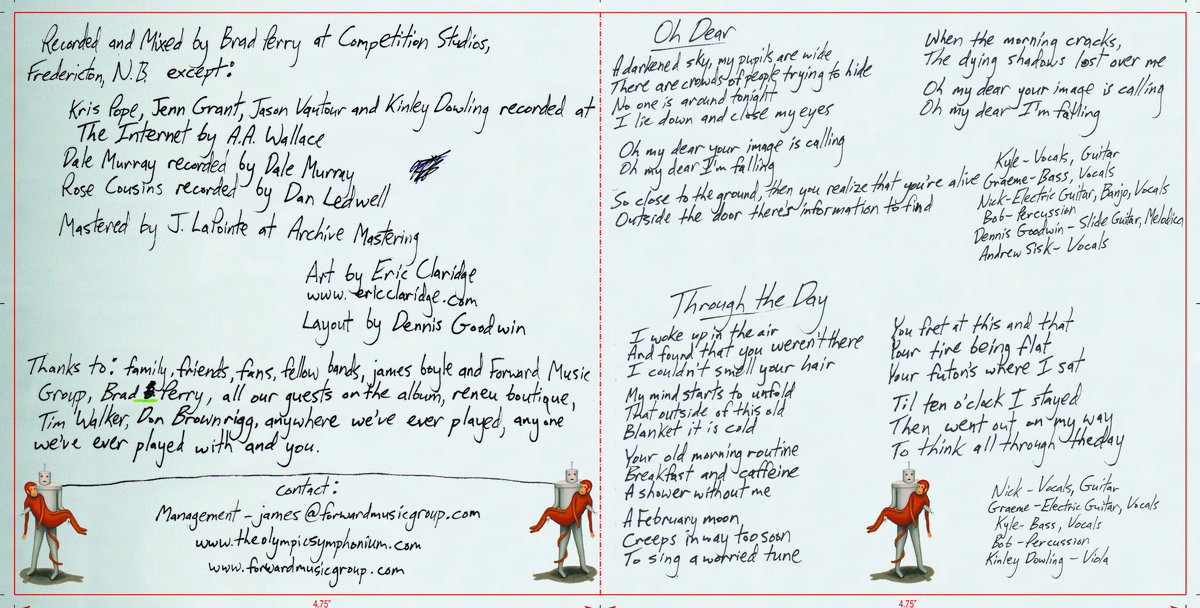 Recorded and Mixed by Brad Perry at Competition Studios,
Fredericton, N.B. except:
Kris Pope, Jenn Grant, Jason Vautour and Kinley Dowling recorded at
The Internet by A.A. Wallace
Dale Murray recorded by Dale Murray
Rose Cousins recorded by Dan Ledwell
Mastered by J. LaPointe at Archive Mastering
Art by Eric Claridge
www.ericclaridge.com
Layout by Dennis Goodwin
Thanks to: family, friends, fans, fellow bands, james boyle and Forward Music
Group, Brad Perry, all our guests on the album, reneu boutique,
Tim Walker, Don Brownrigg, anywhere we've ever played, anyone
we've ever played with and you.
contact:
Management - james@forwardmusicgroup.com
www.theolympicsymphonium.com
www.forwardmusicgroup.com
4.75"
Oh Dear
A darkened sky, my pupils are wide
There are crowds of people trying to hide
No one is around tonight
I lie down and close my eyes
Oh my dear your image is calling
Oh my dear I'm falling
So close to the ground, then you realize that you're alive
Outside the door there's information to find
When the morning cracks,
The dying shadows lost over me
Oh my dear your image is calling
Oh my dear I'm falling
Kyle - Vocals, Guitar
Graeme - Bass, Vocals
Nick - Electric Guitar, Banjo, Vocals
Bob - Percussion
Dennis Goodwin - Slide Guitar, Melodica
Andrew Sisk - Vocals
Through the Day
I woke up in the air
And found that you weren't there
I couldn't smell your hair
My mind starts to unfold
That outside of this old
Blanket it is cold
Your old morning routine
Breakfast and caffeine
A shower without me
A February moon
Creeps in way too soon
To sing a worried tune
You fret at this and that
Your tire being flat
Your futon's where I sat
Til ten o'clock I stayed
Then went out on my way
To think all through the day
Nick - Vocals, Guitar
Graeme - Electric Guitar, Vocals
Kyle - Bass, Vocals
Bob - Percussion
Kinley Dowling - Viola
4.75"